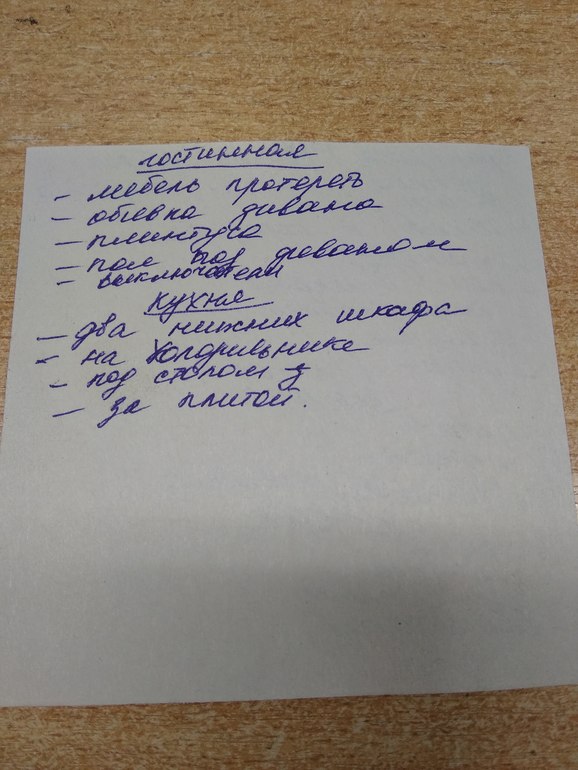 гостинная
- мебель протереть
- обивка дивана
- плинтуса
- пол под диваном
- выключатели
кухня
- два нижних шкафа
- на холодильнике
- под столом
- за плитой.